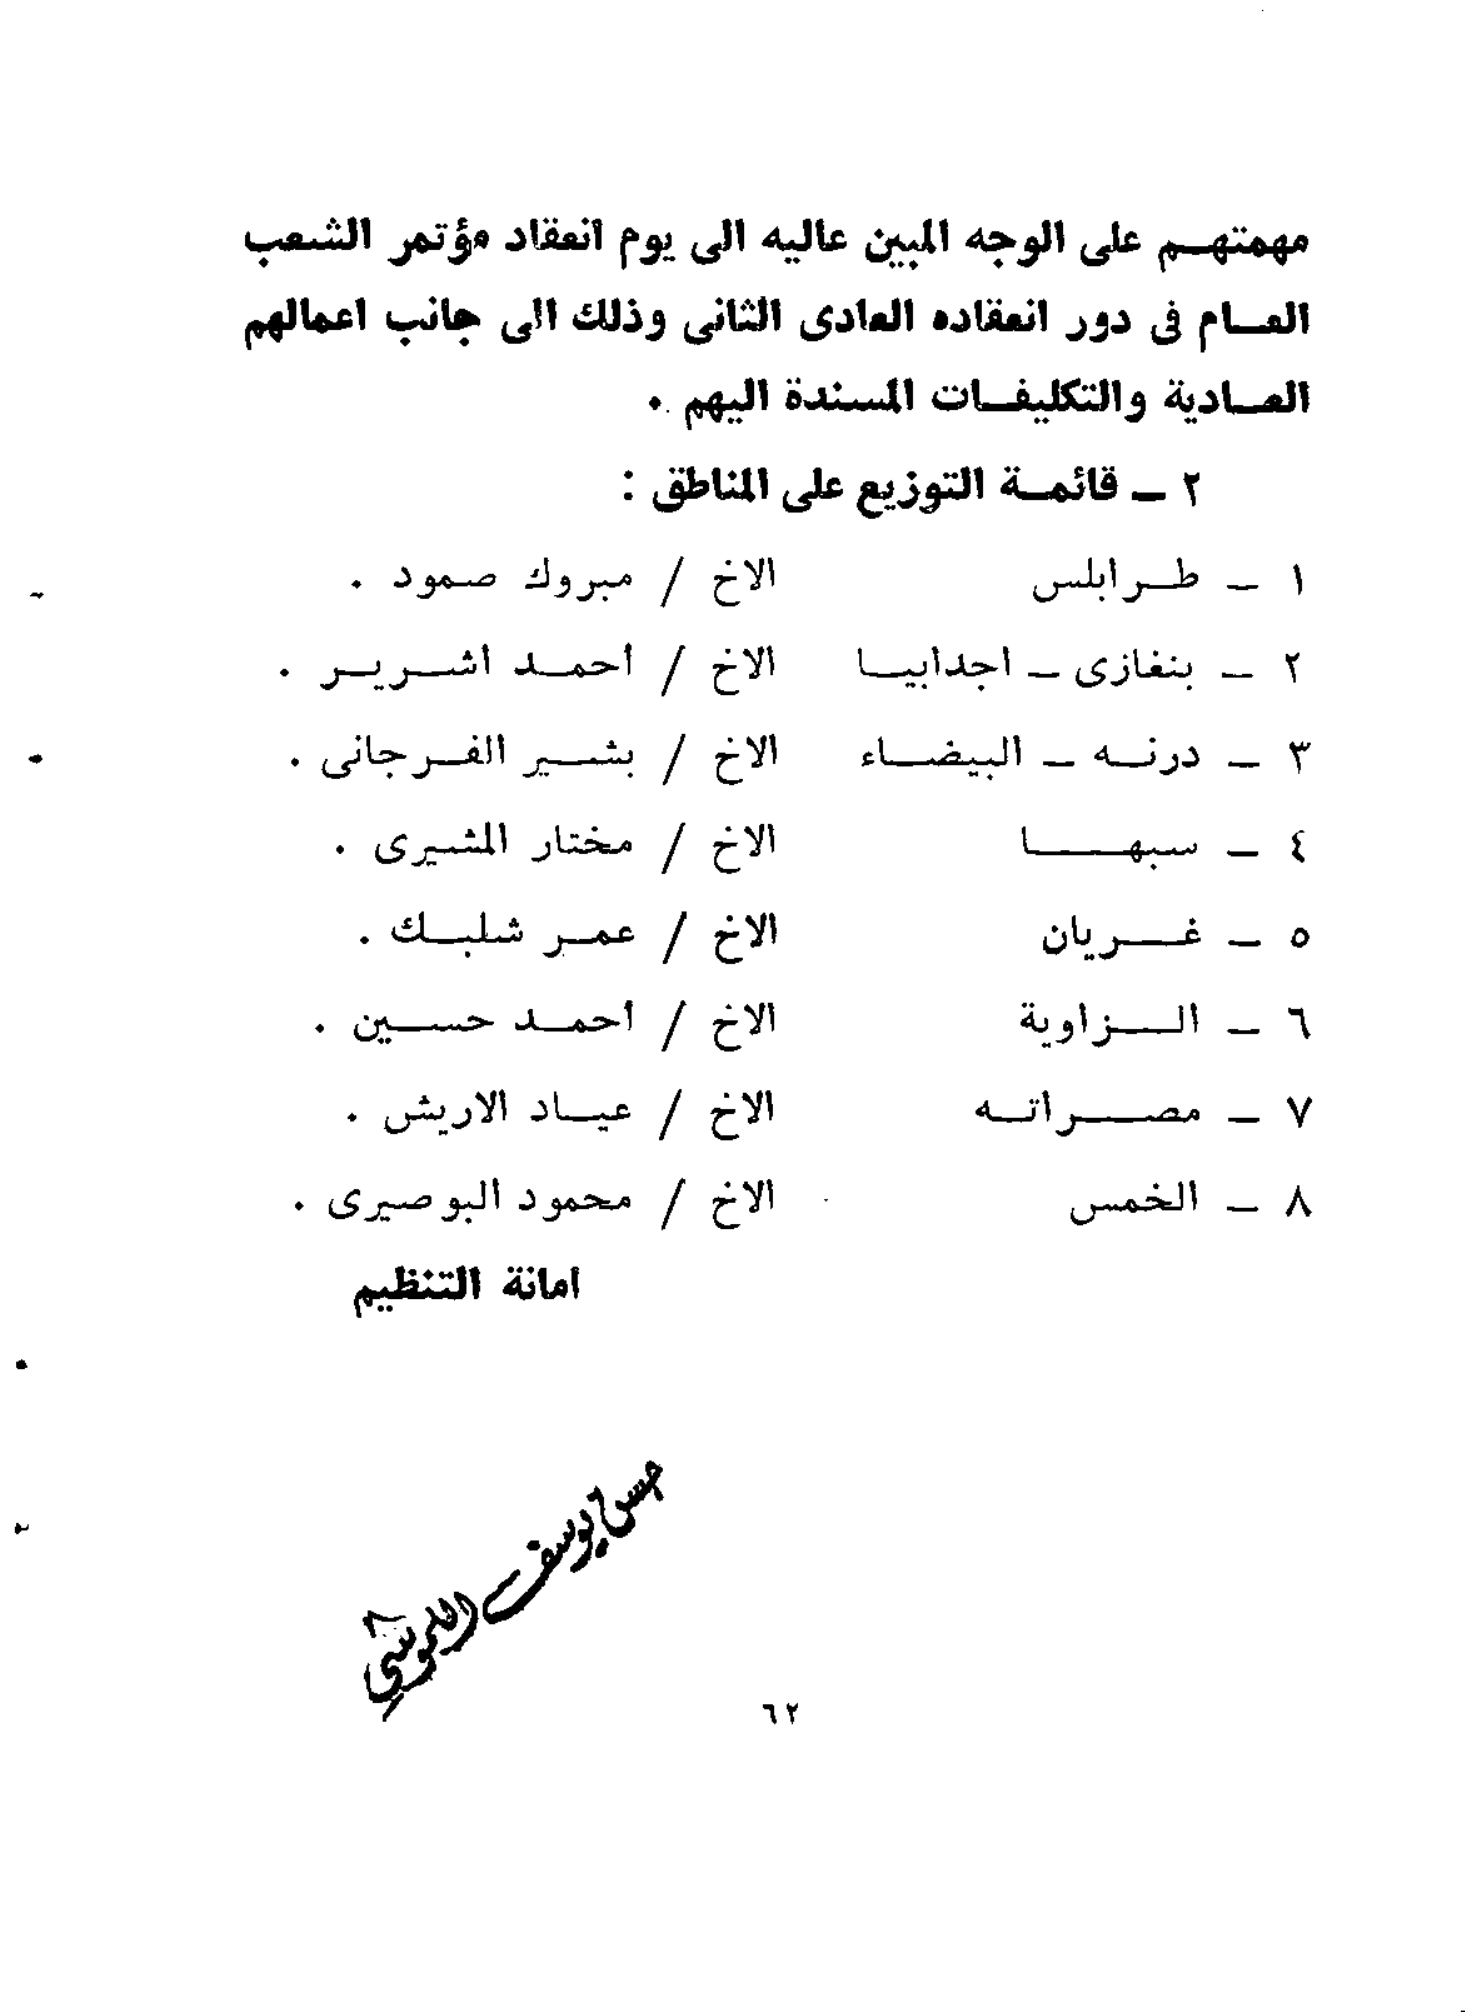 مهمتهم على الوجه المبين عاليه الى يوم انعقاد مؤتمر الشعب
العام فى دور انعقاده العادى الثانى وذلك الى جانب اعمالهم
العادية والتكليفات المسندة اليهم .
٢ – قائمة التوزيع على المناطق :
١ – طرابلس الاخ / مبروك صمود .
٢ – بنغازى – اجدابيا الاخ / أحمد اشرير .
٣ – درنه – البيضاء الاخ / بشير الفرجانى .
٤ – سبها الاخ / مختار المشيرى .
٥ – غريان الاخ / عمر شلبك .
٦ – الزاوية الاخ / أحمد حسين .
٧ – مصراته الاخ / عياد الاريش .
٨ – الخمس الاخ / محمود البوصيرى .
امانة التنظيم
حسن يوسف
٦٢